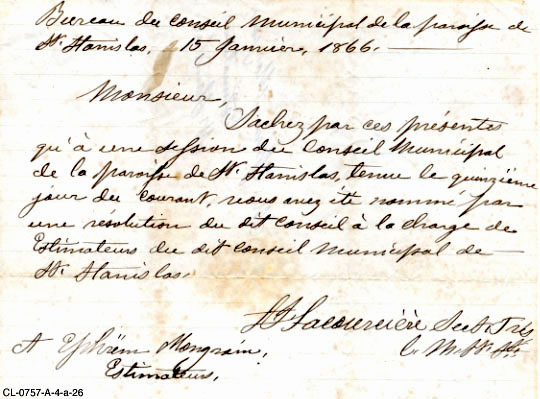 Bureau du Conseil Municipal de la paroisse de
St. Stanislas, 15 Janvier, 1866.
Monsieur,
Sachez par ces présentes
qu'à une session du Conseil Municipal
de la paroisse de St. Stanislas, tenue le quinzième
jour du courant, vous avez été nommé par
une résolution du dit Conseil à la charge de
Estimateurs du dit Conseil Municipal de
St. Stanislas.
Lacourcière Sec. Trés
C. M. P. St.
A Ephrëm Mongrain,
Estimateurs,
CL-0757-A-4-a-26